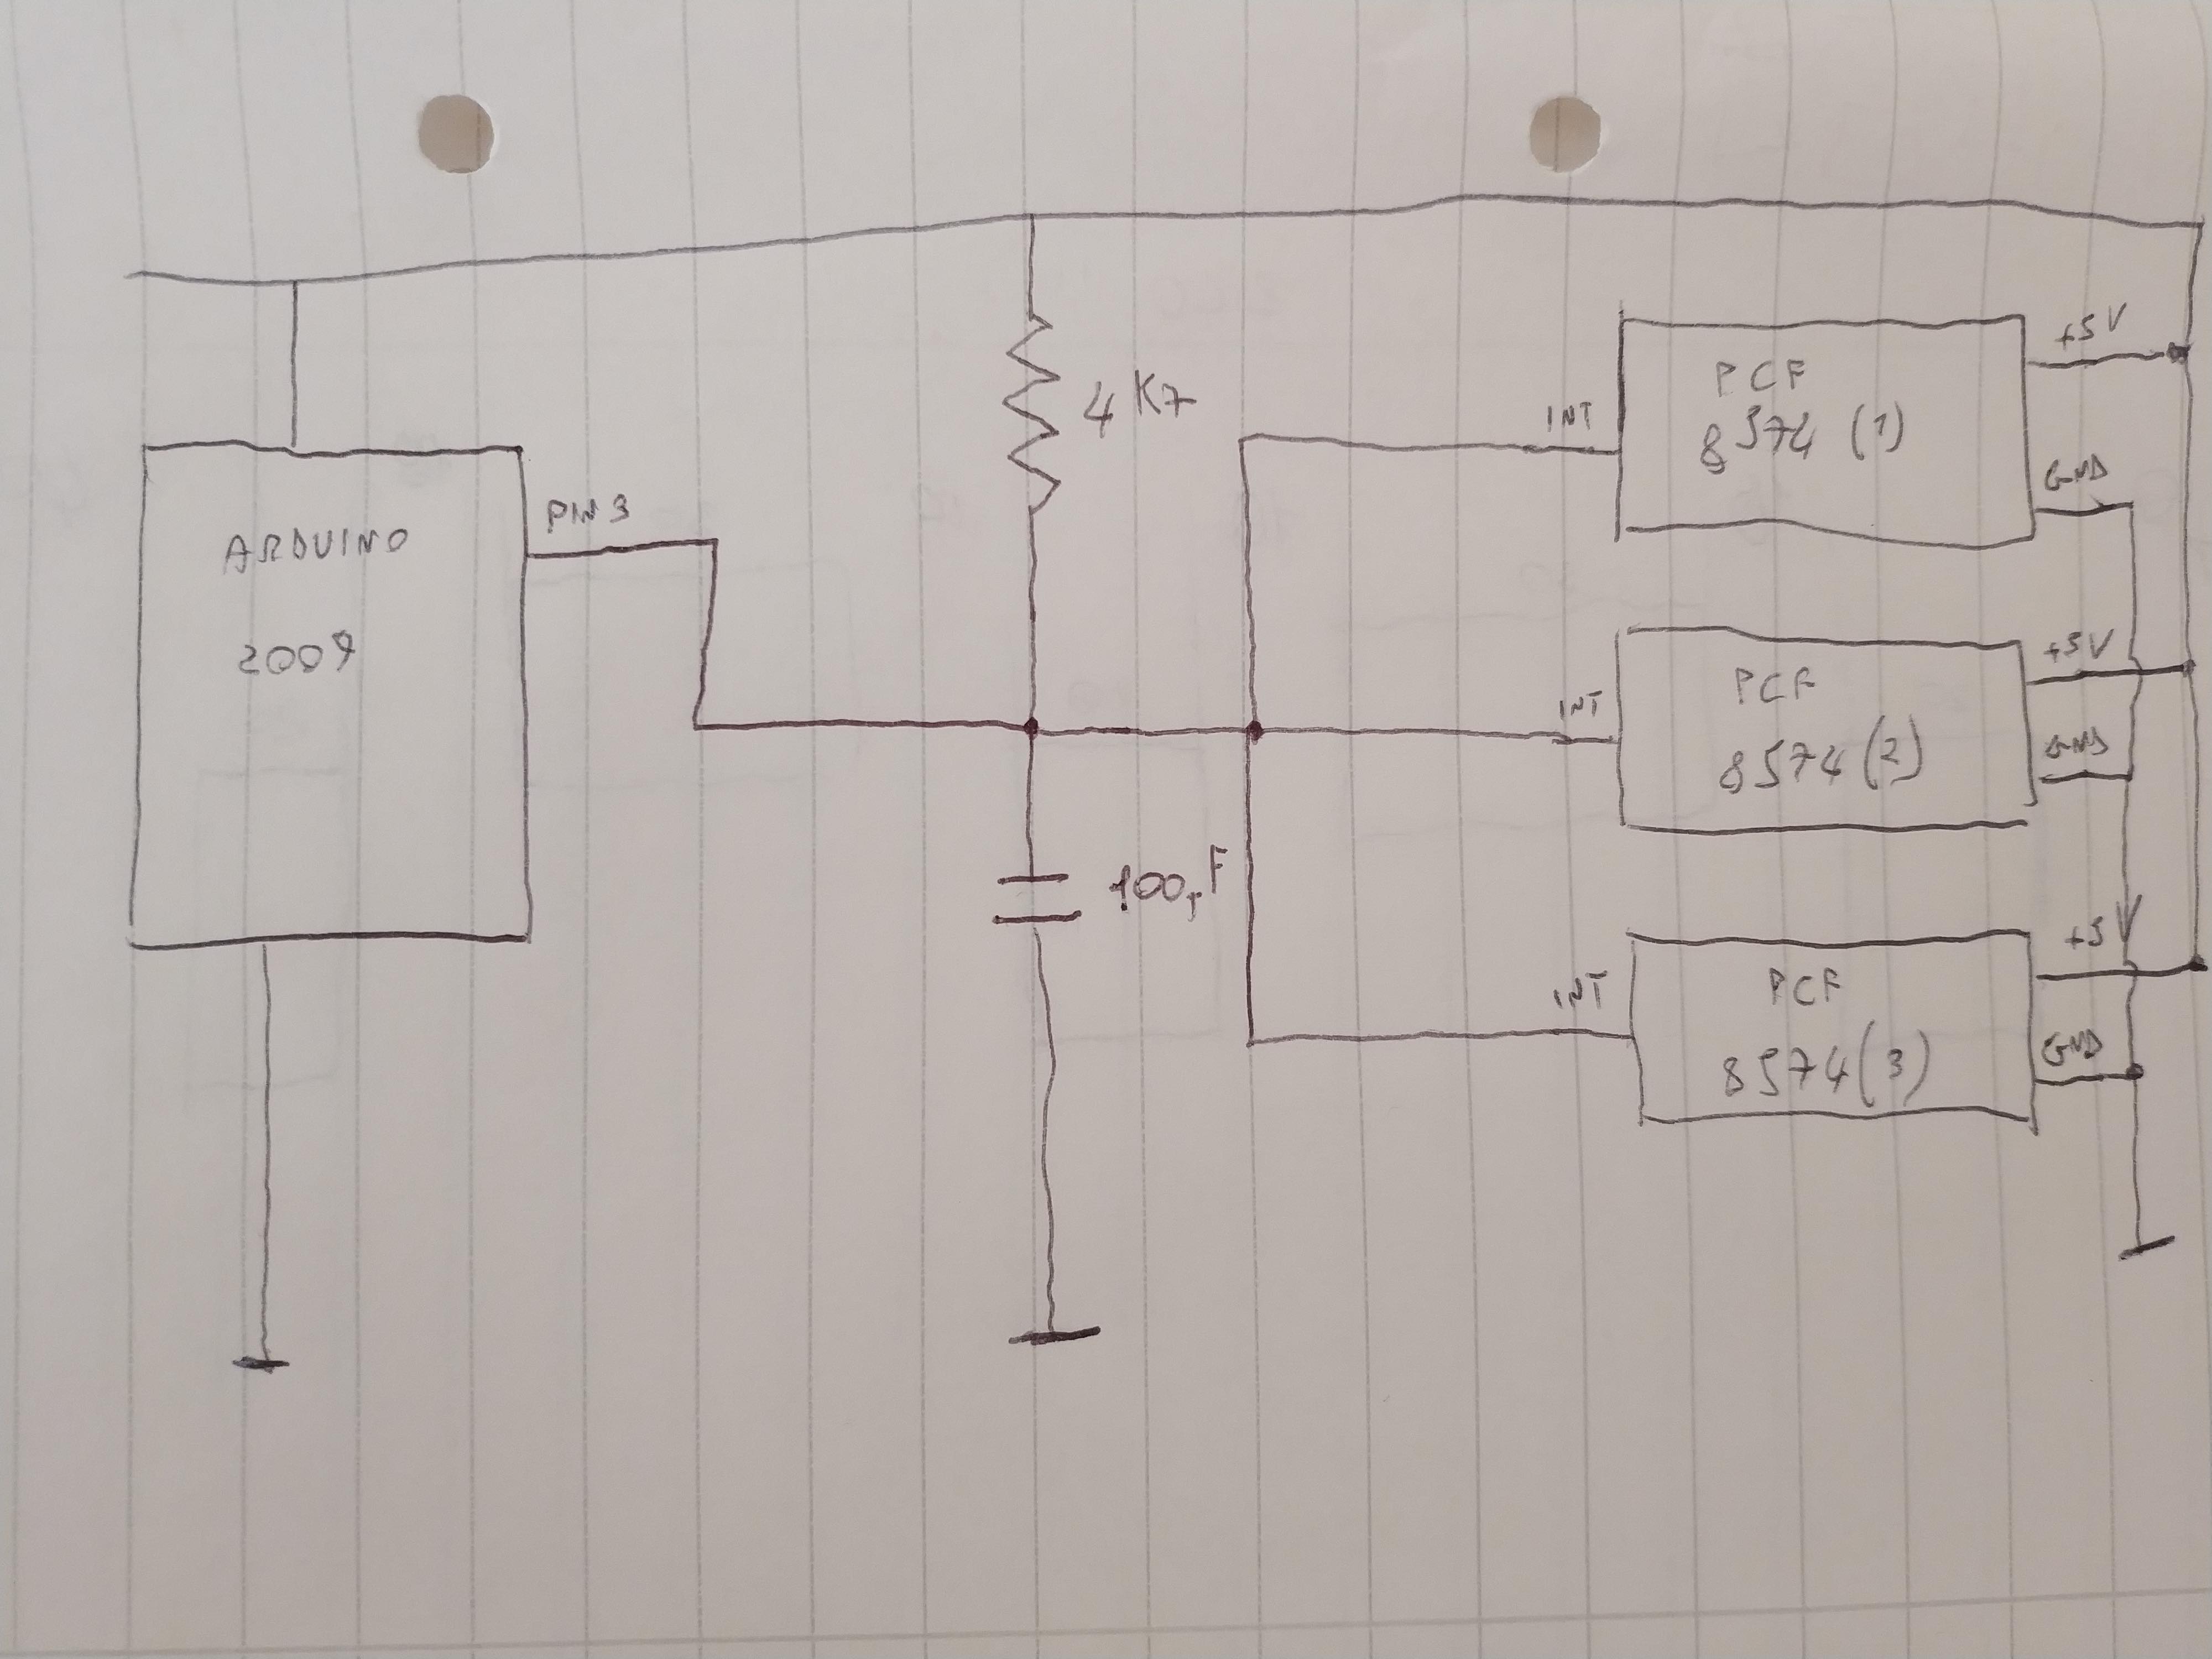 ARDUINO
2009
PIN 3
4K7
INT
PCF
8574 (1)
+5V
GND
INT
PCF
8574 (2)
+5V
GND
INT
PCF
8574 (3)
+5V
GND